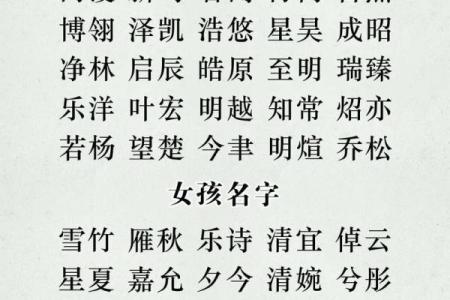 博翎 泽凯 浩悠 星昊 成昭
净林 启辰 皓原 至明 瑞臻
乐洋 叶宏 明越 知常 炤亦
若杨 望楚 今聿 明煊 乔松
女孩名字
雪竹 雁秋 乐诗 清宜 倬云
星夏 嘉允 夕今 清婉 兮彤